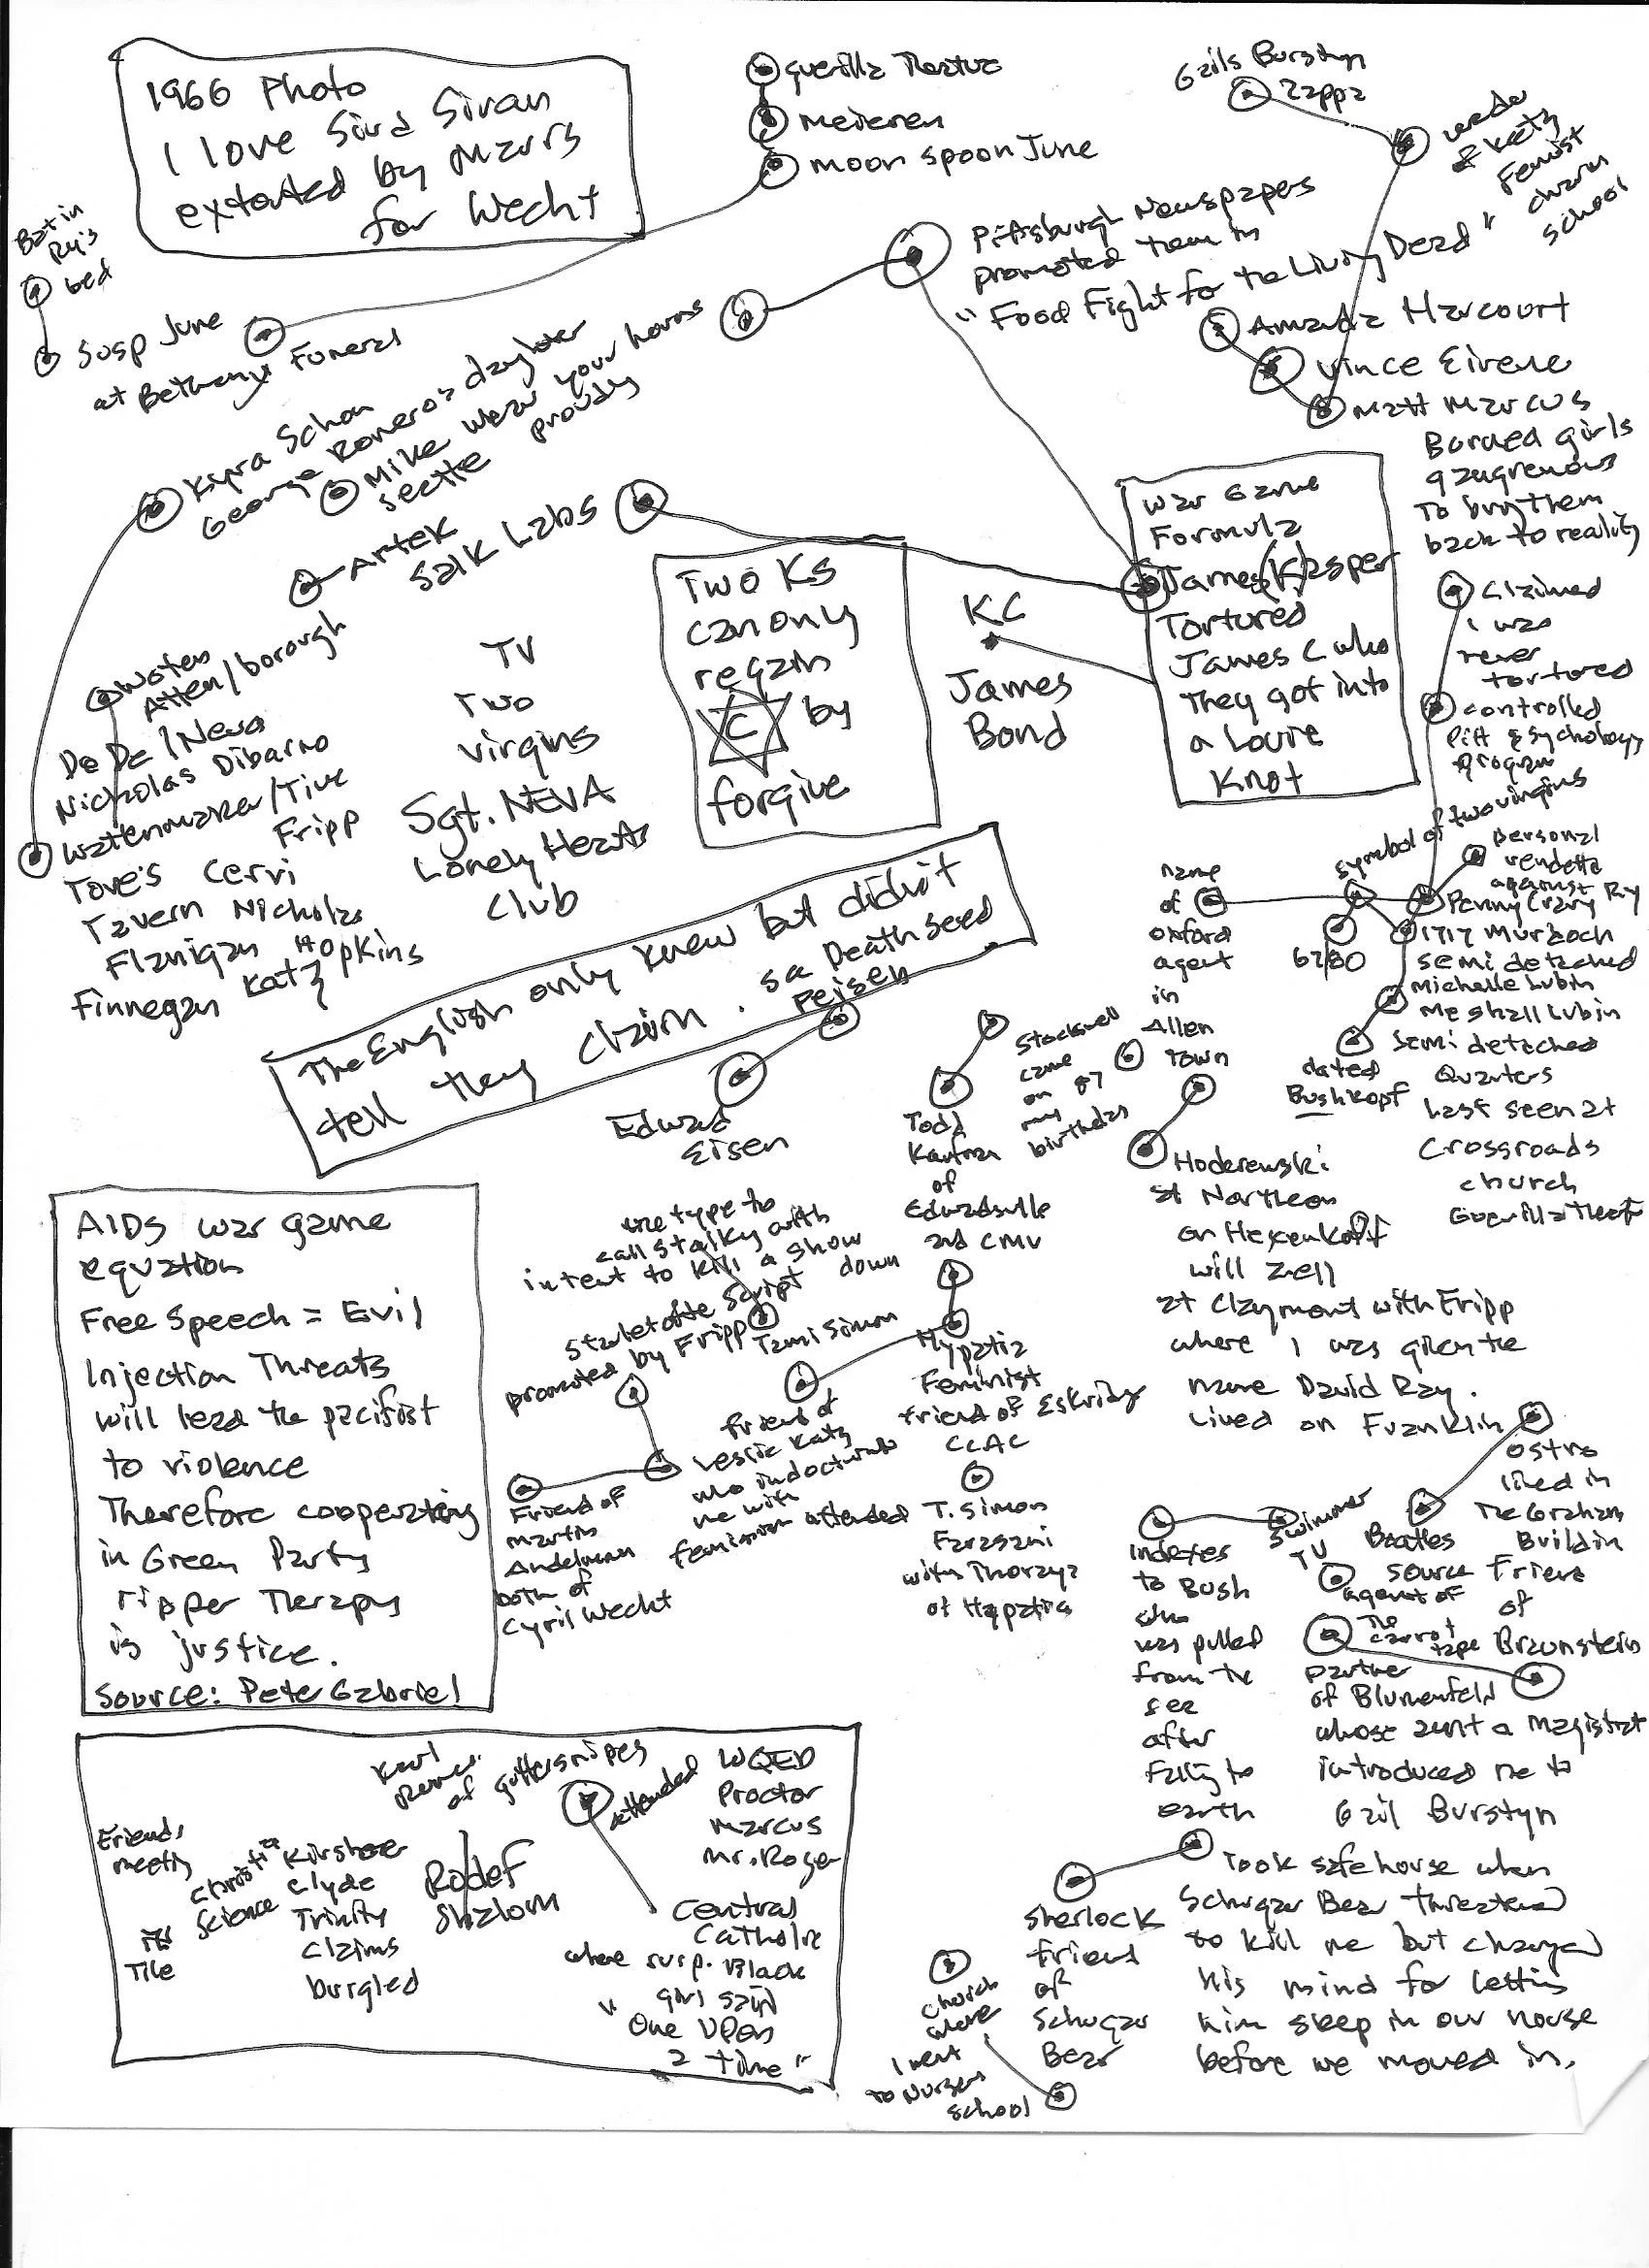 1966 Photo
I love Sird Sivan
extorted by Marrs
for Wecht
guerilla Theatre
meieren
moon spoon June
Gails Burstyn
Zappa
& Katz
Feminist
charm
school
Bat in
Ray's
bed
Susp June
at Bethany Funeral
Pittsburgh Newspapers
promoted them in
"Food Fight for the Living Dead"
Amanda Harcourt
Vince Eirene
Matt Marcus
Borned girls
gangrenous
To bring them
back to reality
Kyra Schon
George Romero's daughter
Mike wear your horns
proudly
Artek
Salk Labs
War Game
Formula
James (K)asper
Tortured
James C who
They got into
a Lovie
Knot
Two Ks
can only
regain
C by
forgive
KC
James
Bond
Claimed
I was
never
tortured
controlled
Pitt Psychology
program
symbol of two virgins
personal
vendetta
against
Penny Crary Ry
1717 Murdoch
semi detached
Michelle Lubin
Meshall Lubin
semi detached
Quarters
Last seen at
Crossroads
church
Guerilla Theatr
Woten
Atten/borough
De De/Neva
Nicholas Dibarno
Wattenmaker/Tive
Fripp
Tove's Cervi
Tavern Nicholas
Flanigan Hopkins
Finnegan Katz
TV
Two
virgins
Sgt. NEVA
Lonely Hearts
Club
The English only knew but didn't
tell they claim. Sa Death Seed
Peisen
Edward
Eisen
name
of
oxford
agent
in
Allen
town
67/80
dated
Bushkopf
Stockwell
came
on 87
my
birthday
Todd
Kaufman
of
Edwardsville
and CMU
Hoderewski
at Northeon
on Hexenkopf
will zell
at Claymont with Fripp
where I was given the
name David Ray.
Lived on Franklin
AIDS war game
equation
Free Speech = Evil
Injection Threats
will lead the pacifist
to violence
Therefore cooperating
in Green Party
ripper Therapy
is justice.
Source: Pete Gabriel
the type to
call Stalky with
intent to kill a show
down
Starlet of the Script
promoted by Fripp
Tami Simon
Hypatia
Feminist
friend of Eskridge
CCAC
T. Simon
Farasani
with Thoraya
of Hypatia
Friend of
Leslie Katz
who indoctrinate
me with
feminism attended
Friend of
Martin
Andelman
both of
Cyril Wecht
Indexes
to Bush
who
was pulled
from the
sea
after
Falling to
earth
Swimmer
TV
Beatles
source
agent of
The
carrot
tape
Ostro
lived in
The Graham
Buildin
Friend
of
Braunstein
partner
of Blumenfeld
whose aunt a Magistrat
introduced me to
Gail Burstyn
Karl
of guttersnipes
attended
WQED
Proctor
Marcus
Mr. Roger
Friends
meeting
Christian
Science
Kirshner
Clyde
Trinity
Claims
burgled
Rodef
Shalom
Tile
Central
Catholic
where susp. Black
girl said
"One Upon
a time"
Sherlock
Friend
of
Schugar
Bear
Took safehouse when
Schugar Bear threatened
to kill me but changed
his mind for letting
him sleep in our house
before we moved in.
church
where
I went
to Nursery
school